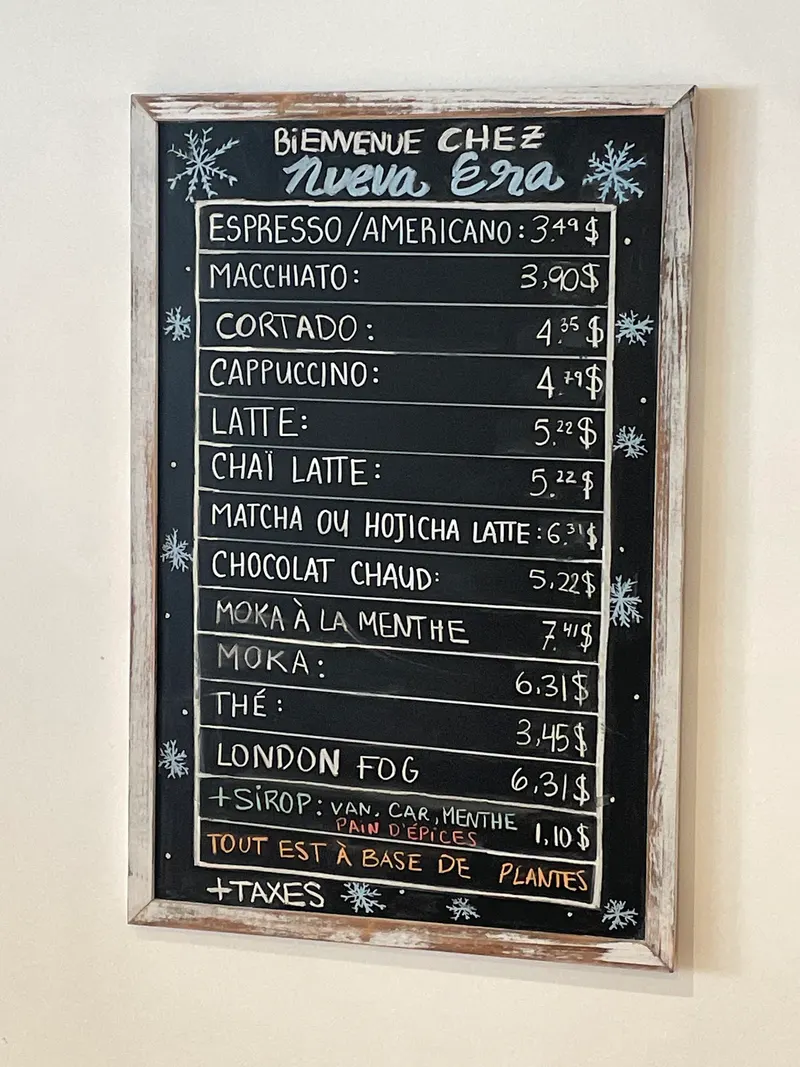 BIENVENUE CHEZ
Nueva Era
ESPRESSO/AMERICANO: 3.49$
MACCHIATO: 3,90$
CORTADO: 4.35$
CAPPUCCINO: 4.79$
LATTE: 5.22$
CHAÏ LATTE: 5.22$
MATCHA OU HOJICHA LATTE: 6.31$
CHOCOLAT CHAUD: 5.22$
MOKA À LA MENTHE 7.41$
MOKA: 6.31$
THÉ: 3,45$
LONDON FOG 6,31$
+SIROP: VAN, CAR, MENTHE
PAIN D'ÉPICES 1,10$
TOUT EST À BASE DE PLANTES
+TAXES